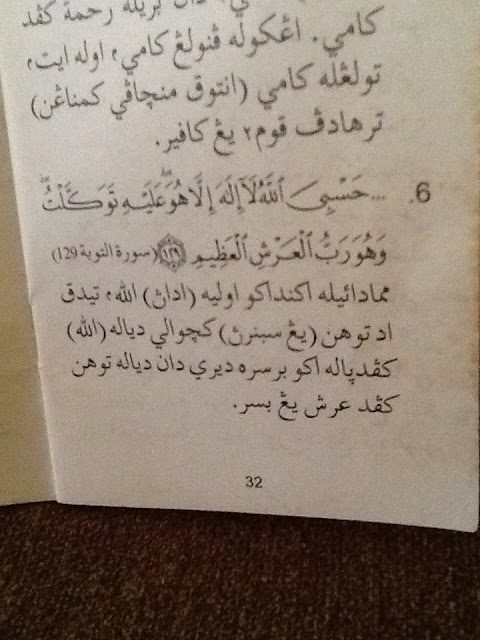 دان بريله رحمة كڤد
كامي. اڠكوله ڤنولڠ كامي، اوله ايت،
تولڠله كامي (انتوق منچاڤي كمناڠن)
ترهادڤ قوم٢ يڠ كافير.
6. ... حَسْبِىَ ٱللَّهُ لَآ إِلَٰهَ إِلَّا هُوَ ۖ عَلَيْهِ تَوَكَّلْتُ ۖ
وَهُوَ رَبُّ ٱلْعَرْشِ ٱلْعَظِيمِ ﴿١٢٩﴾ (سورة التوبة 129)
ممادائيله اكنداكو اوليه (اداڽ) الله، تيدق
اد توهن (يڠ سبنرڽ) كچوالي دياله (الله)
كڤدڽاله اكو برسره ديري دان دياله توهن
كڤد عرش يڠ بسر.
32